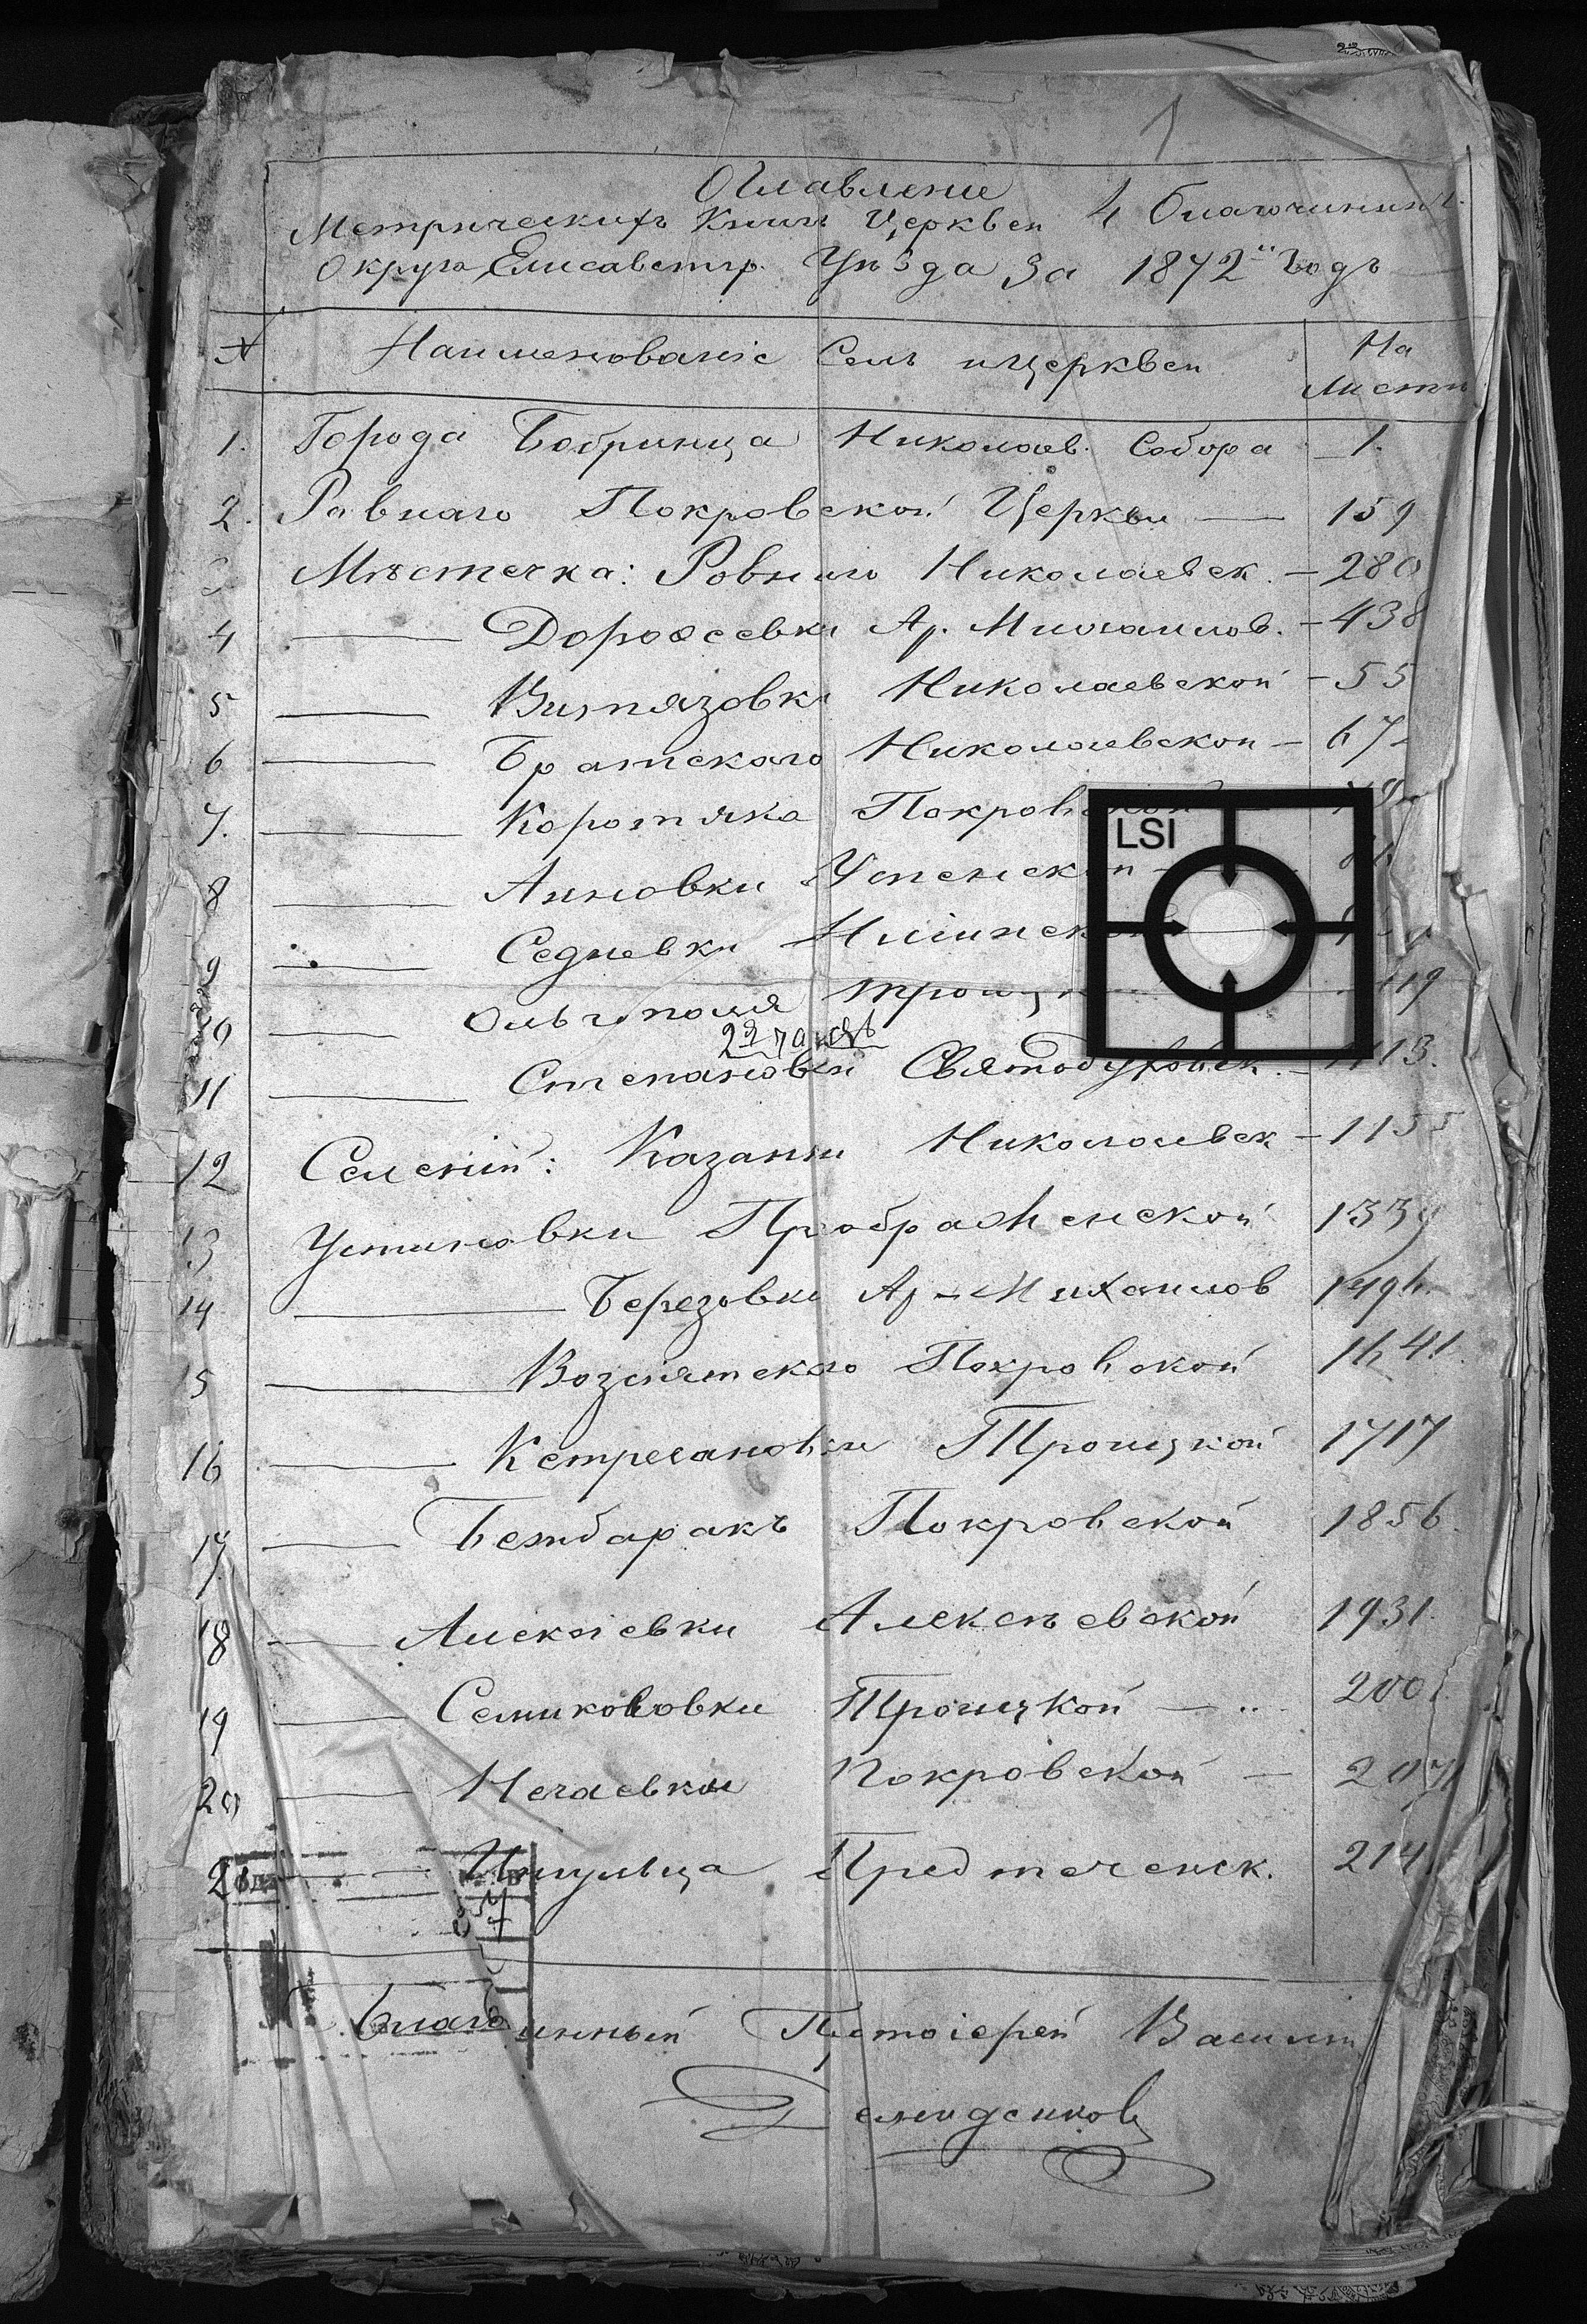 1
Оглавленіе
Метрическихъ Книгъ Церквей 4 Благочинич.
Округа Елисаветгр. Уѣзда За 1872й Годъ
№ Наименованіе Селъ и Церквей На Листѣ
1. Города Бобринца Николаев. Собора 1.
2. Ровнаго Покровской Церкви — 159
Мѣстечка: Ровнаго Николаевск. — 280
4 — Дороѳеевки Ар. Михаилов. — 438
5 — Витязовки Николаевской — 55
6 — Братскаго Николаевской — 67
7. — Коротяка Покровской
8 — Анновки Успенской —
9 — Седневки Ильинской
10 — Ольгополя Троицк 
2я часть
11 — Степановки Святодуховск. — 1113.
12 Селеній: Казанки Николаевск — 1155
13 Устиновки Преображенской 133
14 — Березовки Ар-Михаилов 149
15 — Вознятскаго Покровской 1641.
16 — Кетресановки Троицкой 1717
17 — Бежбаракъ Покровской 1856.
18 — Алексіевки Алексѣевской 1931.
19 — Семиковки Троицкой — 200
20 — Нечаевки Покровской — 207
21 — Ингульца Предтеченск. 214
Благочинный Протоіерей Василій
LSI